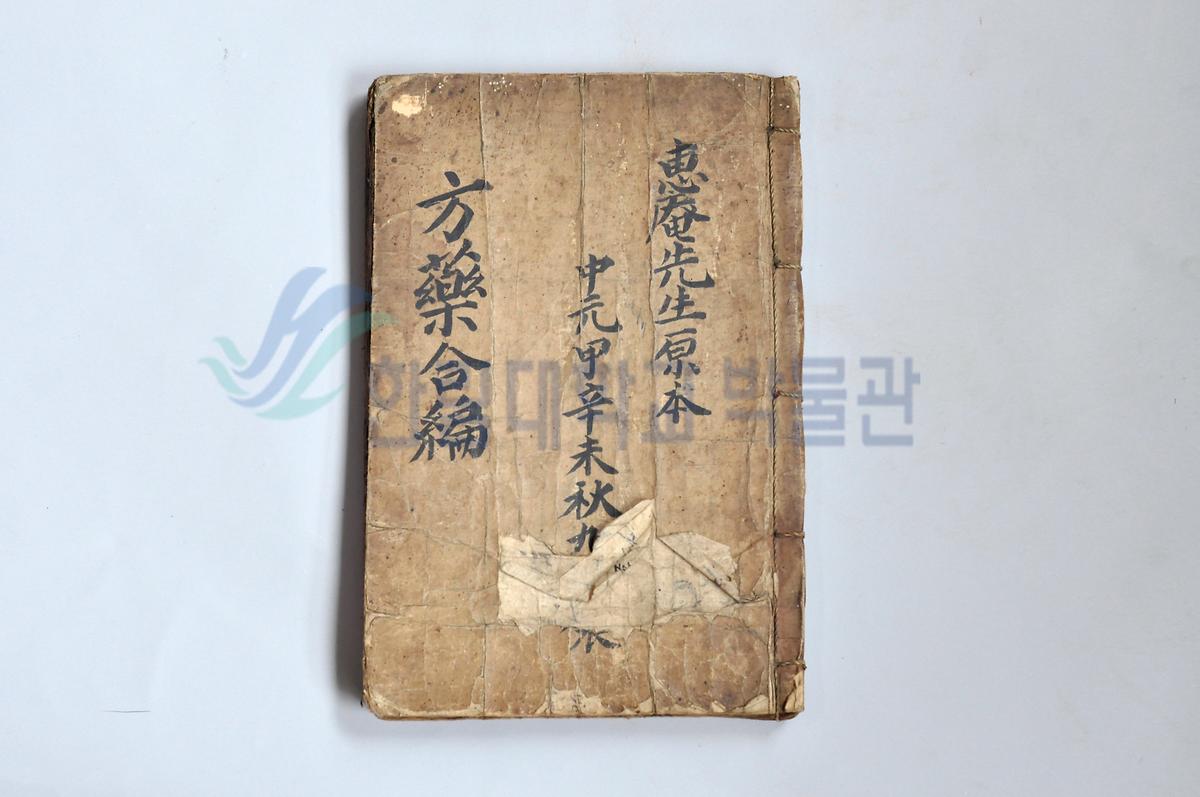 惠庵先生原本
中元甲辛未秋九
方藥合編
No.1
박물관